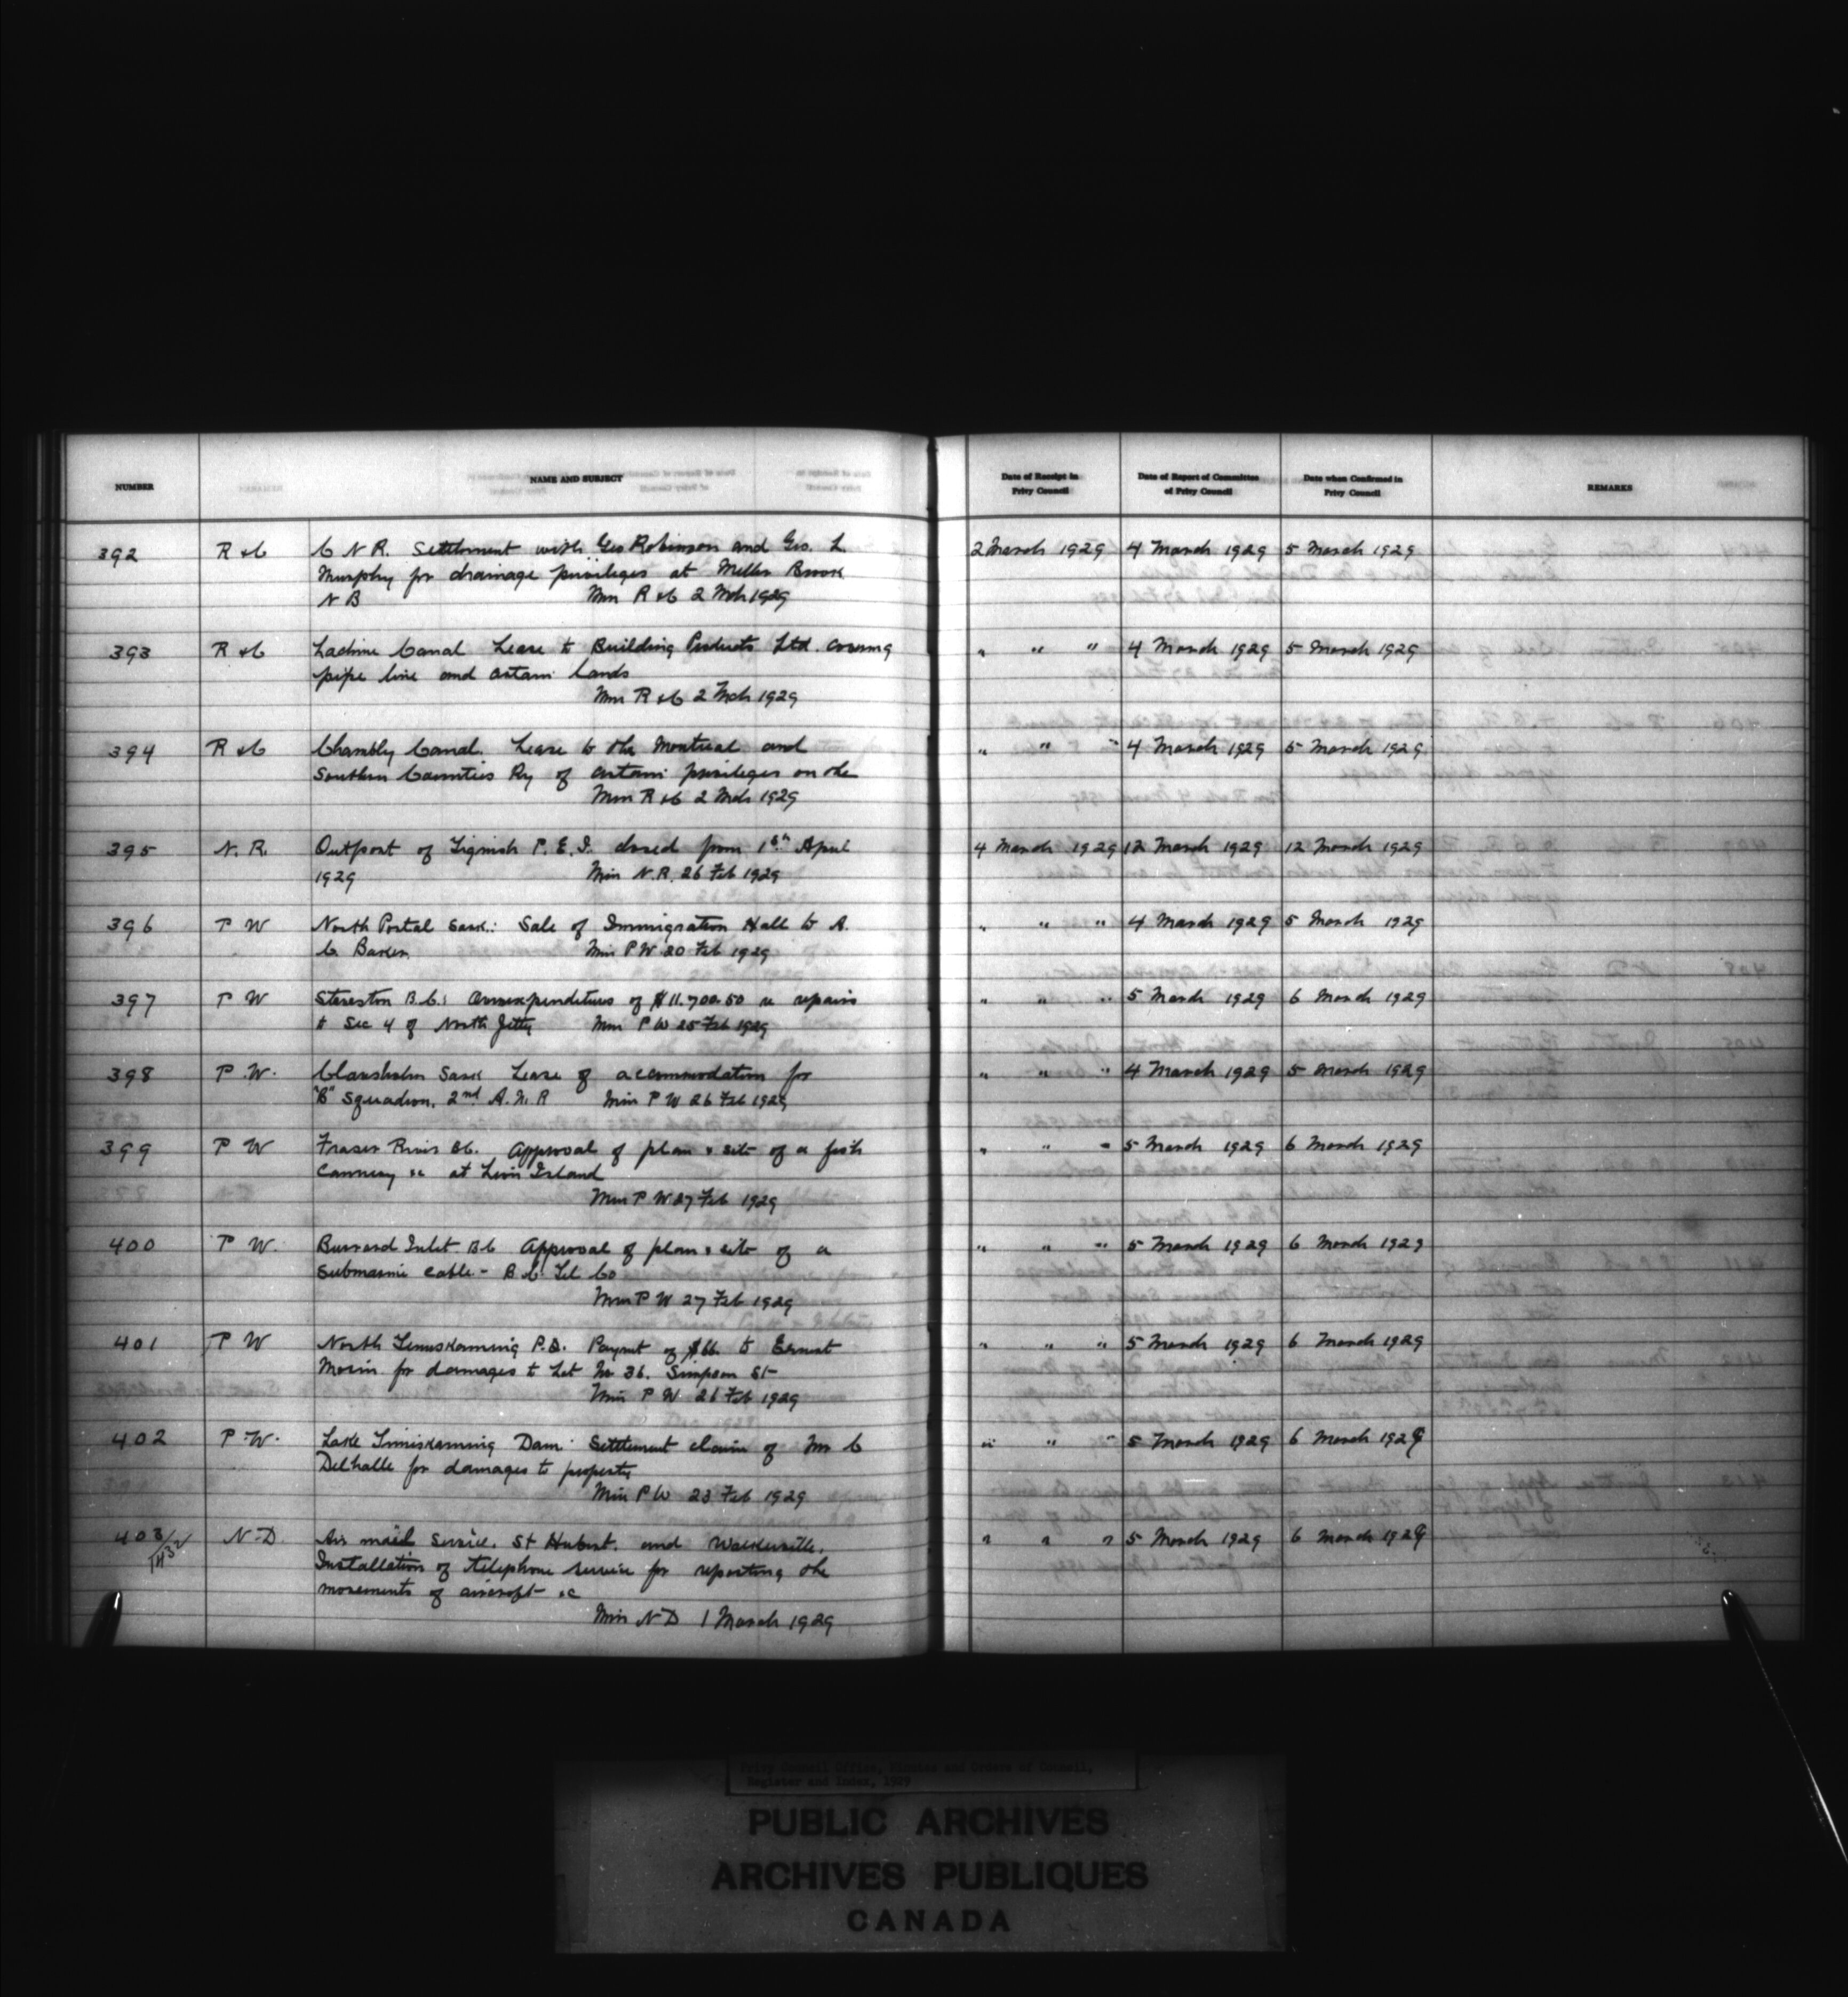 NUMBER NAME AND SUBJECT Date of Receipt in Privy Council Date of Report of Committee of Privy Council Date when Confirmed in Privy Council REMARKS
392 R & C C N R. Settlement with Geo Robinson and Geo. L. 2 March 1929 4 March 1929 5 March 1929
Murphy for drainage privileges at Miller Brook
N B Min R & C 2 Mch 1929
393 R & C Lachine Canal Lease to Building Products Ltd. covering " " " 4 March 1929 5 March 1929
pipe line and certain lands
Min R & C 2 Mch 1929
394 R & C Chambly Canal. Lease to the Montreal and " " " 4 March 1929 5 March 1929
Southern Counties Ry of certain privileges on the
Min R & C 2 Mch 1929
395 N. R. Outport of Tignish P. E. I. closed from 1st April 4 March 1929 12 March 1929 12 March 1929
1929 Min N.R. 26 Feb 1929
396 P W North Portal Sask: Sale of Immigration Hall to A. " " " 4 March 1929 5 March 1929
C. Min P W 20 Feb 1929
397 P W Steveston B.C.: Overexpenditures of $11.700.50 re repairs " " " 5 March 1929 6 March 1929
to Sec 4 of North Jetty Min P W 25 Feb 1929
398 P. W. Sask Lease of accommodation for " " " 4 March 1929 5 March 1929
Squadron. 2nd Min P W 26 Feb 1929
399 P W Fraser River BC. Approval of plan & site of a fish " " " 5 March 1929 6 March 1929
Cannery &c at Lion Island
Min P W 27 Feb 1929
400 P W. Burrard Inlet BC Approval of plan & site of a " " " 5 March 1929 6 March 1929
Submarine cable - B C Tel Co
Min P W 27 Feb 1929
401 P W North Temiskaming P.Q. Paymt of $66. to Ernest " " " 5 March 1929 6 March 1929
Morin for damages to Lot No 36. Simpson St
Min P W 26 Feb 1929
402 P. W. Lake Timiskaming Dam Settlement claim of Mr C " " " 5 March 1929 6 March 1929
Delhalle for damages to property
Min P W 23 Feb 1929
403/1432 N-D Air mail Service. St Hubert. and Walkerville. " " " 5 March 1929 6 March 1929
Installation of telephone service for reporting the
movements of aircraft &c
Min N D 1 March 1929
Privy Council Office, Minutes and Orders of Council,
Register and Index, 1929
PUBLIC ARCHIVES
ARCHIVES PUBLIQUES
CANADA